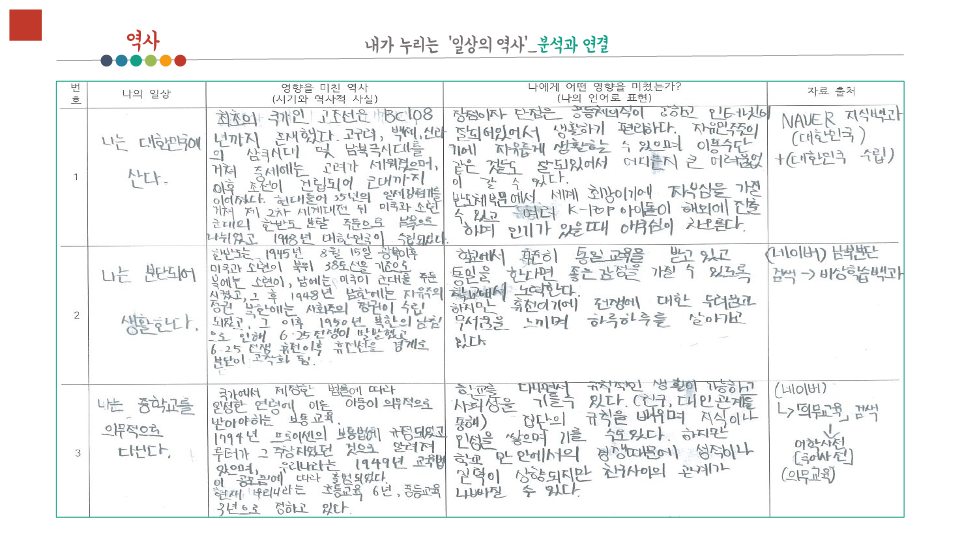 역사
내가 누리는 '일상의 역사'_분석과 연결
번호
나의 일상
영향을 미친 역사
(시기와 역사적 사실)
나에게 어떤 영향을 미쳤는가?
(나의 언어로 표현)
자료 출처
1
나는 대한민국에
산다.
최초의 국가인 고조선은 BC108
년까지 존재했다. 고구려, 백제, 신라
의 삼국시대 및 남북국시대를
거쳐 중세에는 고려가 세워졌으며,
이후 조선이 건립되어 근대까지
이어졌다. 현대들어 35년의 일제강점기를
거쳐 제 2차 세계대전 뒤 미국과 소련
군대의 한반도 분할 주둔으로 남북으로
나뉘었고 1948년 대한민국이 수립되었다.
장점이자 단점은 공동체의식이 강하고 인터넷이
잘되어있어서 생활하기 편리하다. 자유민주주의
기에 자유롭게 생활하는 수 있으며 이동수단
같은 것도 잘되있어서 어디든지 큰 어려움없
이 갈 수 있다.
반도체부문에서 세계 최강이기에 자부심을 가질
수 있고 K-POP 아이돌이 해외에 진출
하며 인기가 있을때 애국심이 차오른다.
NAVER 지식백과
(대한민국)
+(대한민국 수립)
2
나는 분단되어
생활한다.
한반도는 1945년 8월 15일 광복이후
미국과 소련이 북위 38도선을 기준으로
북에는 소련이, 남에는 미국이 군대를 주둔
시켰고, 그 후 1948년 남한에는 자유주의
정권 북한에는 사회주의 정권이 수립
되었고, 그 이후 1950년 북한의 남침
으로 인해 6·25전쟁이 발발했고
6·25 전쟁 휴전이후 휴전선을 경계로
분단이 고착화 됨.
학교에서 꾸준히 통일교육을 받고 있고
통일을 한다면 좋은 감정을 가질 수 있도록
학교에서 노력한다.
하지만 휴전이기에 전쟁에 대한 두려움과
무서움을 느끼며 하루하루를 살아가고
있다.
(네이버) 남북분단
검색 → 비상학습백과
3
나는 중학교를
의무적으로
다닌다.
국가에서 제정한 법률에 따라
일정한 연령에 이른 아동이 의무적으로
받아야하는 보통교육.
1794년 프로이센의 보통법에 규정되었고
부터가 그 추상되었던 것으로 알려져
있으며, 우리나라는 1949년 교육법
이 공포됨에 따라 출범되었다.
현재 우리나라는 초등교육 6년, 중등교육
3년으로 정하고 있다.
학교를 다니면서 규칙적인 생활이 가능하고
사회성을 기를수 있다. (친구, 대인관계를
통해) 집단의 규칙을 배우며 지식이나
인성을 쌓으며 기를 수도있다. 하지만
학교 안 안에서의 경쟁때문에 성적이나
실력이 상향되지만 친구사이의 관계가
나빠질 수 있다.
(네이버)
↳ "의무교육" 검색
↓
어학사전
[국어사전]
(의무교육)